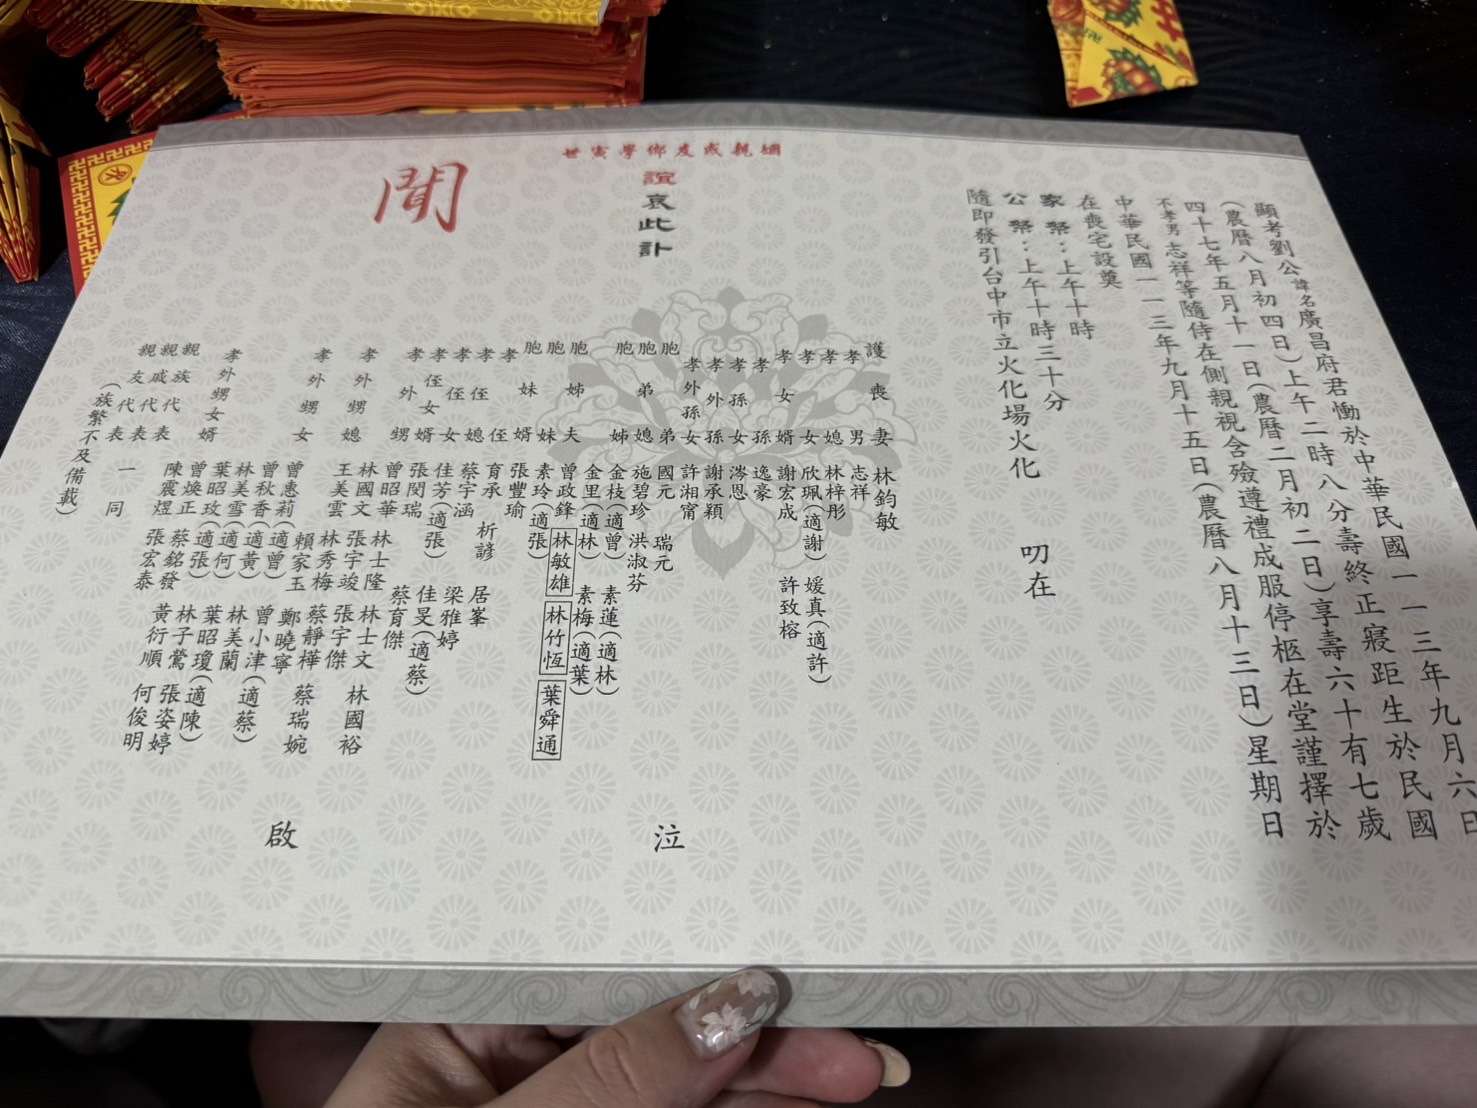 顯考劉公諱名廣昌府君慟於中華民國一一三年九月六日
(農曆八月初四日)上午二時八分壽終正寢距生於民國
四十七年五月十一日(農曆二月初二日)享壽六十有七歲
不孝男志祥等隨侍在側親視含殮遵禮成服停柩在堂謹擇於
中華民國一一三年九月十五日(農曆八月十三日)星期日
在喪宅設奠
家祭:上午十時
公祭:上午十時三十分
隨即發引台中市立火化場火化 叨在
姻親戚友鄉學寅世
誼哀此訃
聞
護喪妻 林鈞敏
孝男 志祥
孝媳 林梓彤
孝女 欣珮(適謝) 媛真(適許)
孝女婿 謝宏成 許致榕
孝孫 逸豪
孝孫女 涔恩
孝外孫 謝承穎
孝外孫女 許湘甯
胞弟 國元 瑞元
胞弟媳 施碧珍 洪淑芬
胞姊 金枝(適曾) 素蓮(適林)
金里(適林) 素梅(適葉)
胞姊夫 曾政鋒 林敏雄 林竹恆 葉舜通
胞妹 素玲(適張)
胞妹婿 張豐瑜
孝侄 育承 析諺 居峯
孝侄媳 蔡宇涵 梁雅婷
孝侄女 佳芳(適張) 佳旻(適蔡)
孝侄女婿 張閔瑞 蔡育傑
孝外甥 曾昭華 林士隆 林士文
林國文 張宇竣 張宇傑 林國裕
孝外甥媳 王美雲 林秀梅 蔡靜樺
賴家玉 鄭曉寧 蔡瑞婉
孝外甥女 曾惠莉(適曾) 曾小津(適蔡)
曾秋香(適黃) 林美蘭
林美雪(適何) 葉昭瓊(適陳)
葉昭玫(適張) 林子鶯 張姿婷
孝外甥女婿 曾煥正 蔡銘發 黃衍順 何俊明
陳震煜 張宏泰
親族代表
親戚代表
親友代表
一同
(族繁不及備載)
泣
啟